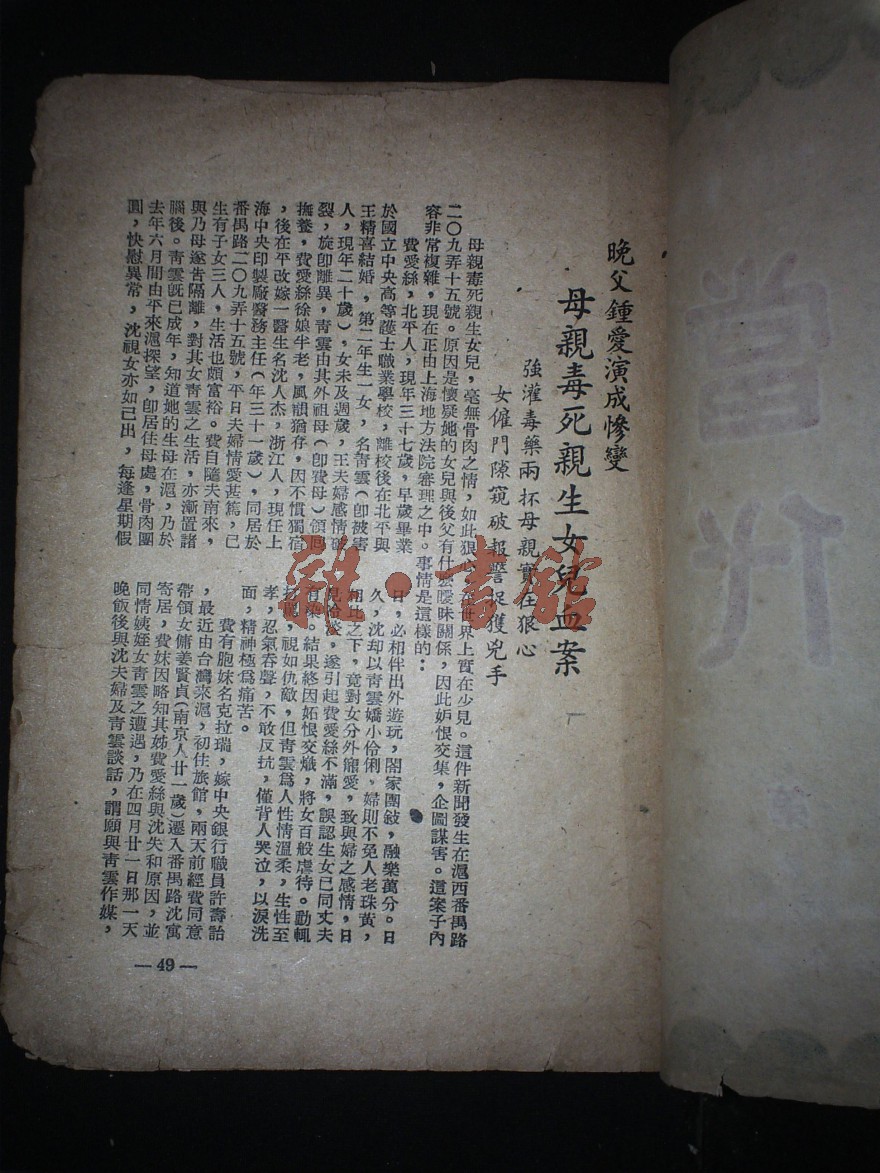 晚父鍾愛演成慘變
母親毒死親生女兒血案
強灌毒藥兩杯母親實在狠心
女傭門隙窺破報警捉獲兇手
母親毒死親生女兒,毫無骨肉之情,如此狠心,在世界上實在少見。這件新聞發生在滬西番禺路
二〇九弄十五號。原因是懷疑她的女兒與後父有什麼曖昧關係,因此妒恨交集,企圖謀害。這案子內
容非常複雜,現在正由上海地方法院審理之中。事情是這樣的:
費愛絲,北平人,現年三十七歲,早歲畢業
於國立中央高等護士職業學校,離校後在北平與
王精喜結婚,第二年生一女,名青雲(卽被害
人,現年二十歲),女未及週歲,王夫婦感情破
裂,旋卽離異,青雲由其外祖母(卽費母)領回
撫養,費愛絲徐娘半老,風韻猶存,因不慣獨宿
,後在平改嫁一醫生名沈人杰,浙江人,現任上
海中央印製廠醫務主任(年三十一歲),同居於
番禺路二〇九弄十五號,平日夫婦情愛甚篤,已
生有子女三人,生活也頗富裕。費自隨夫南來,
與乃母遂告隔離,對其女青雲之生活,亦漸置諸
腦後。青雲旣已成年,知道她的生母在滬,乃於
去年六月間由平來滬探望,卽居住母處,骨肉團
圓,快慰異常,沈視女亦如已出,每逢星期假
日,必相伴出外遊玩,闔家團敍,融樂萬分。日
久,沈却以青雲嬌小伶俐,婦則不免人老珠黃,
相比之下,竟對女分外寵愛,致與婦之感情,日
見冷淡,遂引起費愛絲不滿,誤認生女已同丈夫
有染。結果終因妬恨交熾,將女百般虐待。動輒
打罵,視如仇敵,但青雲爲人性情溫柔,生性至
孝,忍氣吞聲,不敢反抗,僅背人哭泣,以淚洗
面,精神極爲痛苦。
費有胞妹名克拉瑞,嫁中央銀行職員許壽詒
,最近由台灣來滬,初住旅館,兩天前經費同意
帶領女傭姜賢貞(南京人廿一歲)遷入番禺路沈寓
寄居,費妹因略知其姊費愛絲與沈失和原因,並
同情姨姪女青雲之遭遇,乃在四月廿一日那一天
晚飯後與沈夫婦及青雲談話,謂願與青雲作媒,
—49—
雜·書館
當代